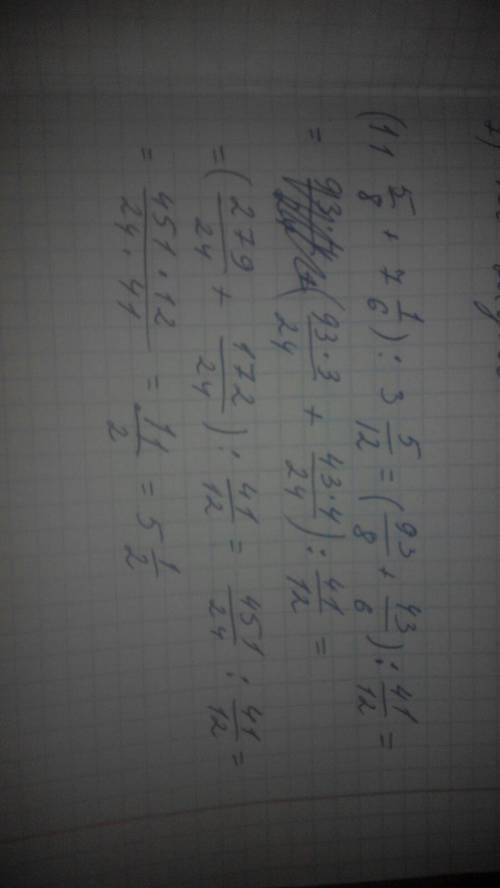 (11 5/8 + 7 1/6) : 3 5/12 = (93/8 + 43/6) : 41/12 =
= (93·3/24 + 43·4/24) : 41/12 =
= (279/24 + 172/24) : 41/12 = 451/24 : 41/12 =
= 451·12/24·41 = 11/2 = 5 1/2